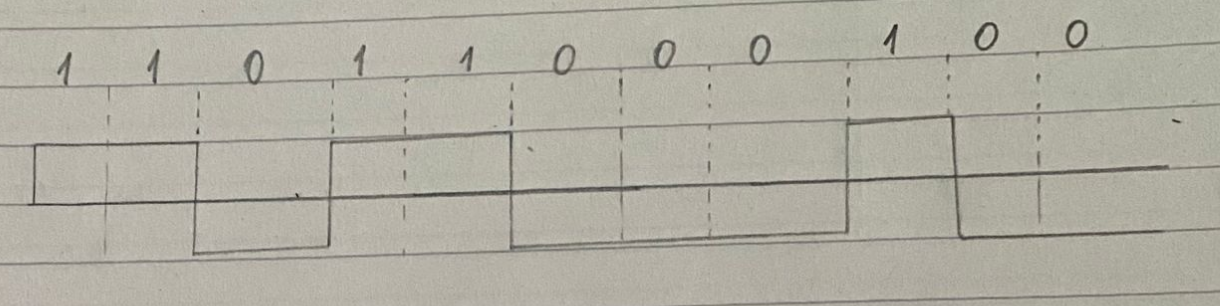 1 1 0 1 1 0 0 0 1 0 0